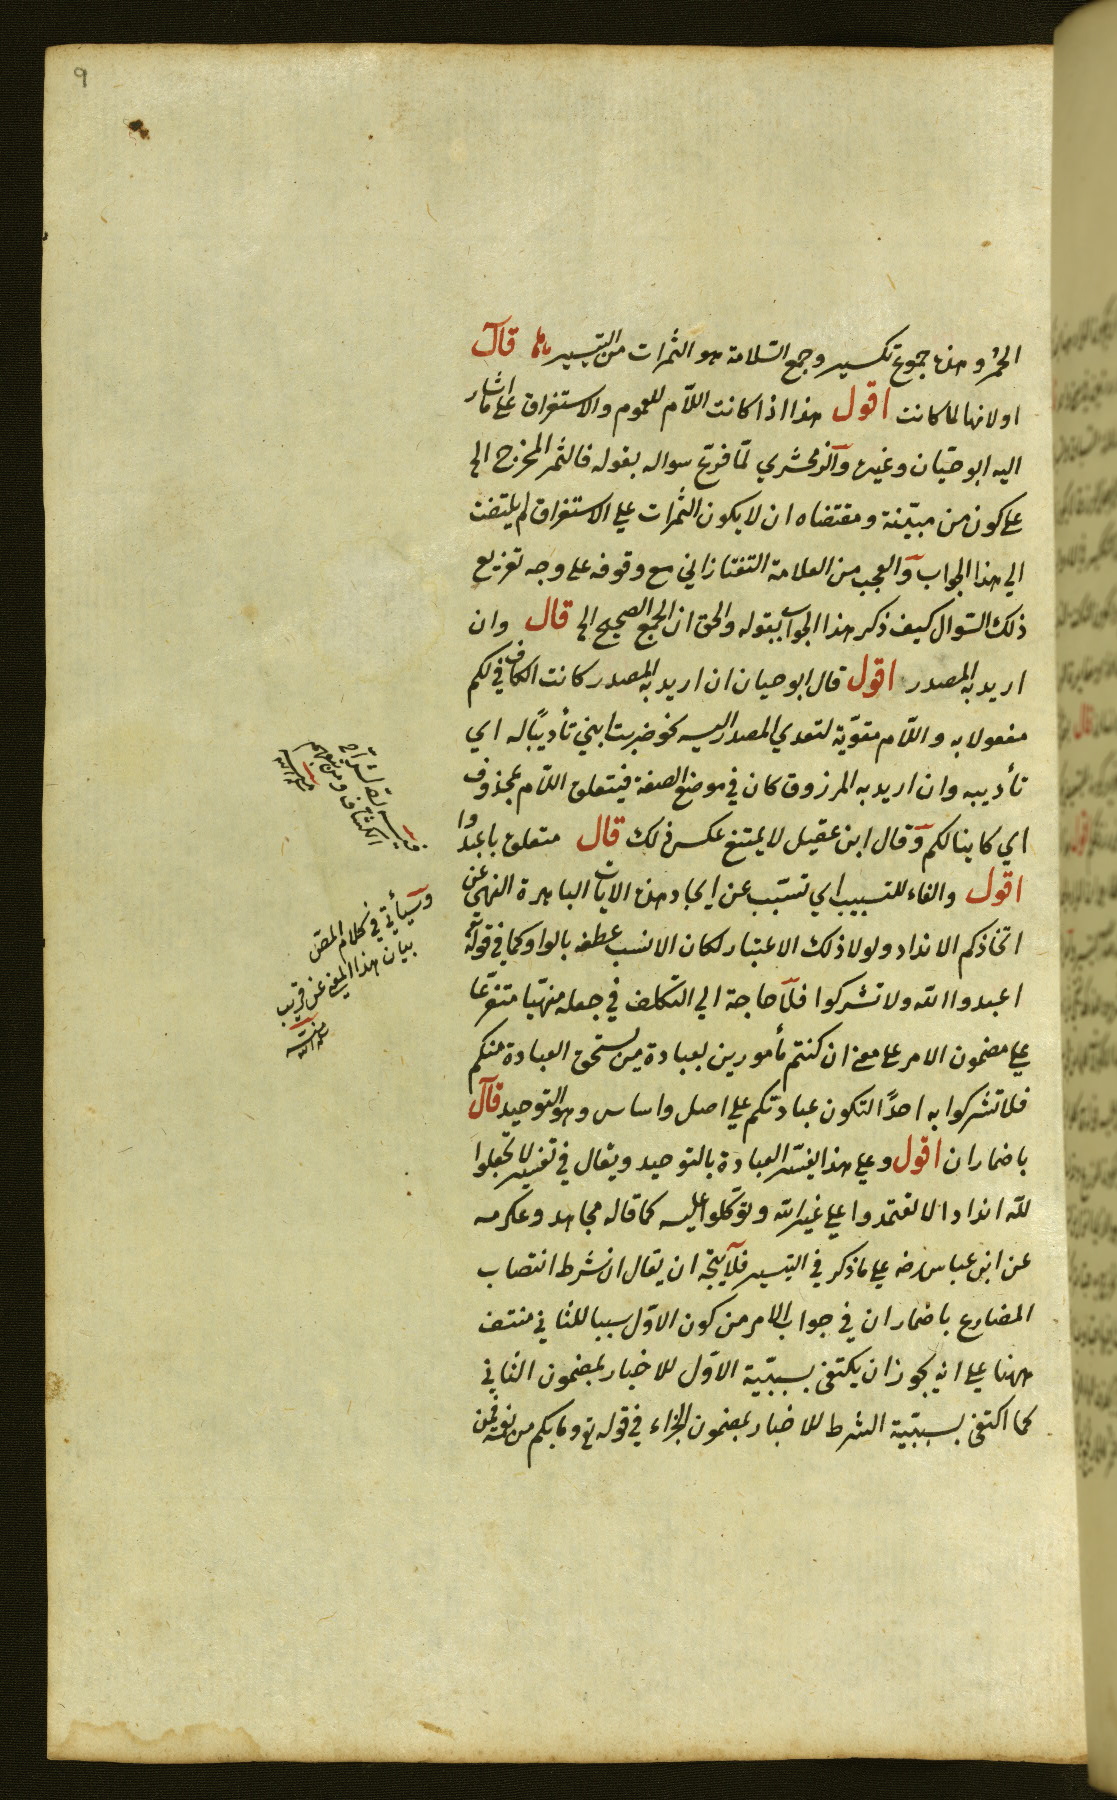 ٩
الحمر وهذه جموع تكسير وجمع السلامة هو الثمرات من التيسير قال
اولانها لما كانت اقول هذا اذا كانت اللام للعموم والاستغراق على ما اشار
اليه ابو حيان وغيره والزمخشري لما فرع سواله بقوله فالثمر المخرج الى
على كون من مبينة ومقتضاه ان لا يكون الثمرات على الاستغراق لم يلتفت
الى هذا الجواب والعجب من العلامة التفتازاني مع وقوفه على وجه تفريع
ذلك السوال كيف ذكر هذا الجواب بقوله والحق ان الجمع الصحيح الى قال وان
اريد به المصدر اقول قال ابو حيان ان اريد به المصدر كانت الكاف في لكم
مفعولا به واللام مقوية لتعدي المصدر اليه نحو ضربت ابني تأديبا له اي
تأديبه وان اريد به المرزوق كان في موضع الصفة فيتعلق اللام بمحذوف
اي كاينا لكم وقال ابن عقيل لا يمتنع عكس ذلك قال متعلق باعبدوا
اقول والفاء للتسبيب اي تسبب عن ايجاد هذه الايات الباهرة النهي عن
اتخاذكم الانداد ولولا ذلك الاعتبار لكان الانسب عطفه بالواو كما في قوله تع
اعبدوا الله ولا تشركوا فلا حاجة الى التكلف في جعله منهيا متفرعا
على مضمون الامر على معنى ان كنتم مأمورين بعبادة من يستحق العبادة منكم
فلا تشركوا به احدا لتكون عبادتكم على اصل واساس وهو التوحيد قال
باضمار ان اقول وعلى هذا يفسر العبادة بالتوحيد ويقال في تفسير لا تجعلوا
لله اندادا لا تعتمدوا على غير الله وتوكلوا عليه كما قاله مجاهد وعكرمه
عن ابن عباس رضه على ما ذكر في التيسير فلا يتجه ان يقال ان شرط انتصاب
المضارع باضمار ان في جواب الامر من كون الاول سببا للثاني منتف
ههنا على انه يجوز ان يكتفى بسببية الاول للاخبار بمضمون الثاني
كما اكتفى بسببية الشرط للاخبار بمضمون الجزاء في قوله تع وما بكم من نعمة فمن
الكشاف
وسيأتي في كلام المص
بيان هذا المعنى عن قريب